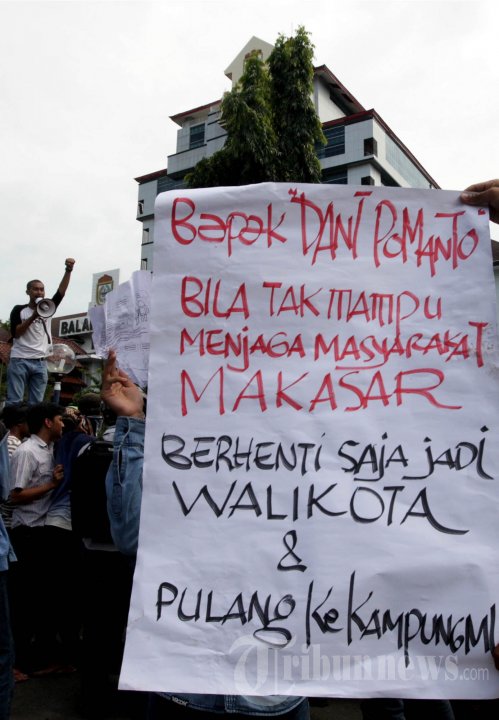 Bapak "DANI POMANTO"
BILA TAK MAMPU
MENJAGA MASYARAKAT
MAKASAR
BERHENTI SAJA JADI
WALIKOTA
&
PULANG KE KAMPUNGMU
BALA
Tribunnews.com